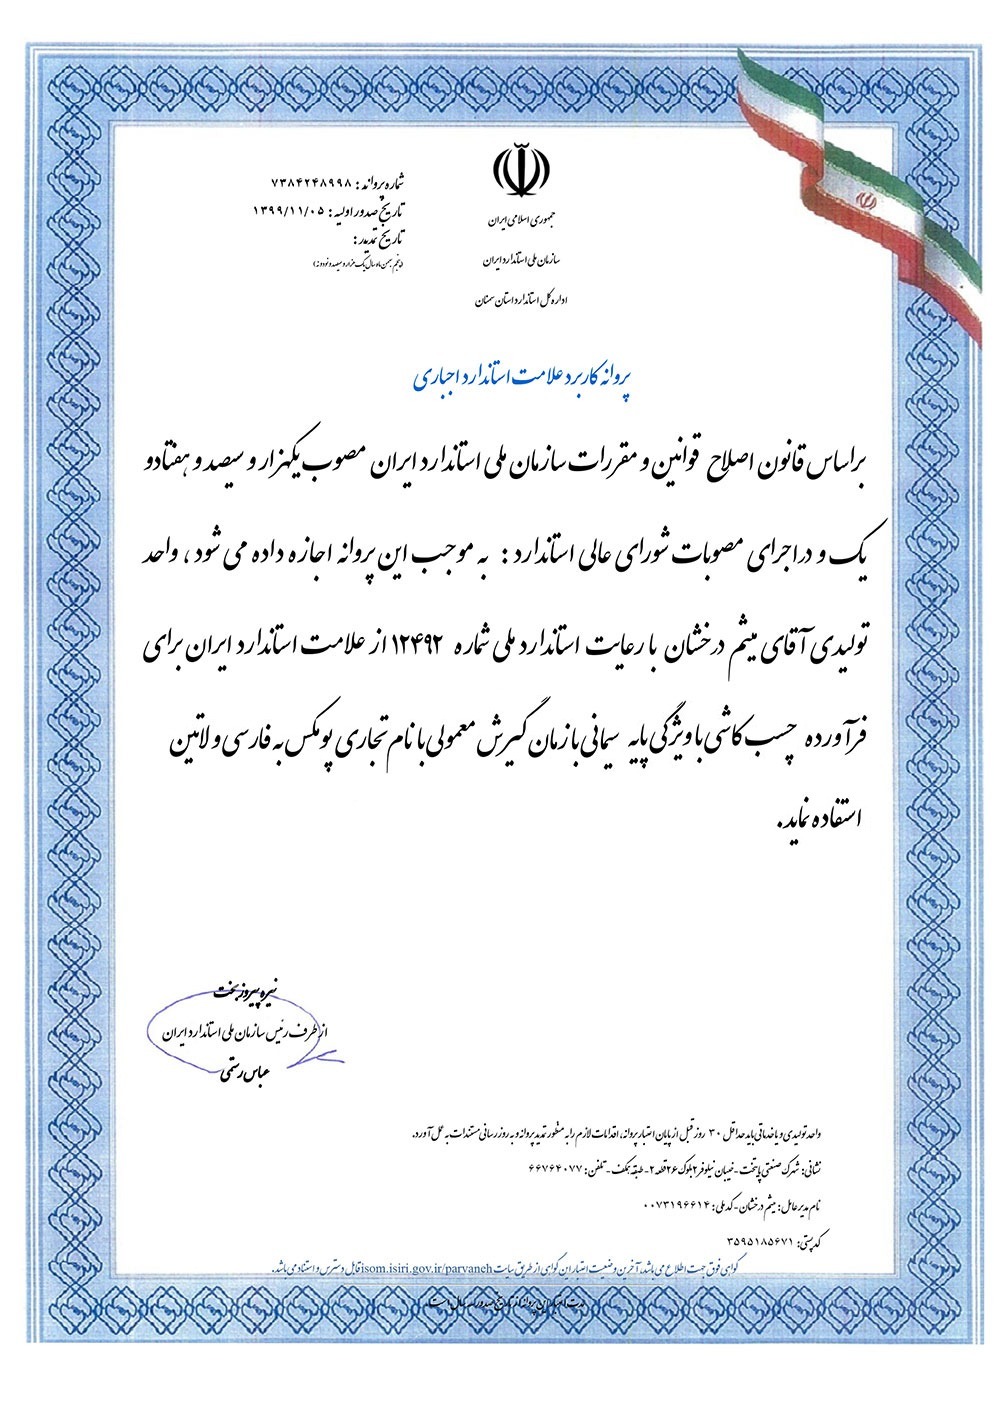 جمهوری اسلامی ایران
سازمان ملی استاندارد ایران
اداره کل استاندارد استان سمنان
شماره پروانه : ۷۳۸۴۲۴۸۹۹۸
تاریخ صدور اولیه : ۱۳۹۹/۱۱/۰۵
تاریخ تمدید :
(پنجم بهمن ماه سال یک هزار و سیصد و نود و نه)
پروانه کاربرد علامت استاندارد اجباری
براساس قانون اصلاح قوانین و مقررات سازمان ملی استاندارد ایران مصوب یکهزار و سیصد و هفتادو
یک و در اجرای مصوبات شورای عالی استاندارد : به موجب این پروانه اجازه داده می شود ، واحد
تولیدی آقای میثم درخشان با رعایت استاندارد ملی شماره ۱۲۴۹۲ از علامت استاندارد ایران برای
فرآورده چسب کاشی با ویژگی پایه سیمانی با زمان گیرش معمولی با نام تجاری پومکس به فارسی و لاتین
استفاده نماید.
نیره پیروزبخت
از طرف رئیس سازمان ملی استاندارد ایران
عباس رستمی
واحد تولیدی و یا خدماتی باید حداقل ۳۰ روز قبل از پایان اعتبار پروانه، اقدامات لازم را به منظور تمدید پروانه و به روز رسانی مستندات به عمل آورد.
نشانی: شهرک صنعتی پایتخت - خیابان نیلوفر ۲ بلوک ۲۶ قطعه ۲ - طبقه همکف - تلفن: ۶۶۷۶۴۰۷۷
نام مدیر عامل: میثم درخشان - کد ملی: ۰۰۷۳۱۹۶۶۱۴
کد پستی: ۳۵۹۵۱۸۵۶۷۱
گواهی فوق جهت اطلاع می باشد، آخرین وضعیت اعتبار این گواهی از طریق سایت isom.isiri.gov.ir/parvaneh قابل دسترس و استناد می باشد.
مدت اعتبار این پروانه از تاریخ صدور سال است